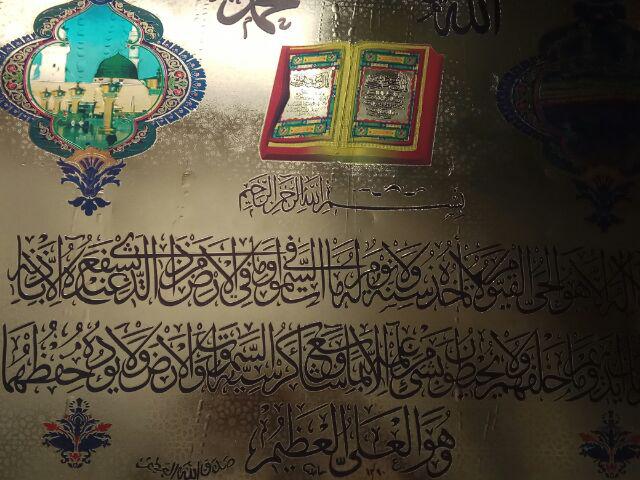 الله محمد
بسم الله الرحمن الرحيم
اله الا هو الحي القيوم لا تأخذه سنة ولا نوم له ما في السموات وما في الارض من ذا الذي يشفع عنده الا باذنه
ايديهم وما خلفهم ولا يحيطون بشيء من علمه الا بما شاء وسع كرسيه السموات والارض ولا يوده حفظهما
وهو العلي العظيم
صدق الله العظيم